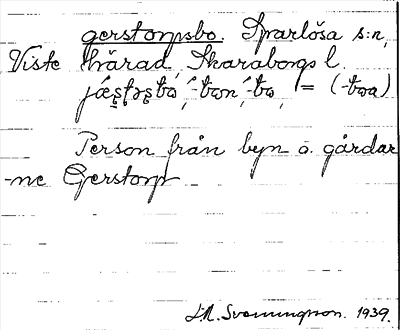 gerstorpsbo. Sparlösa s:n,
Viste härad, Skaraborgs l.
= (-boa)
Person från byn o. gårdar
-ne Gerstorp
Svenningson. 1939.